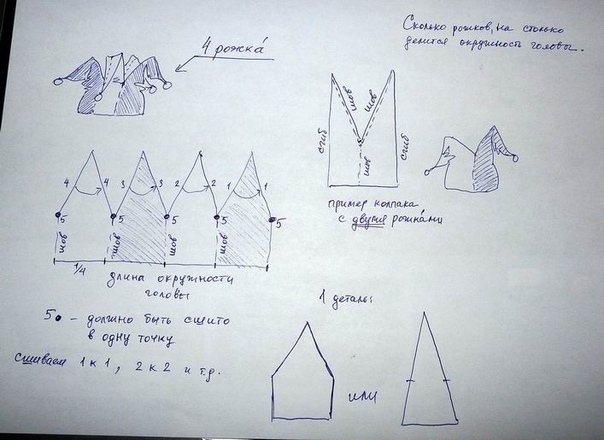 Сколько рожков, на столько
делится окружность головы.
4 рожка́
4 4 3 3 2 2 1 1
5 5 5 5 5
шов шов шов шов
1/4
длина окружности
головы
5• – должно быть сшито
в одну точку
Сшиваем 1 к 1, 2 к 2 и т.д.
шов шов
сгиб шов сгиб
пример колпака
с двумя рожка́ми
1 деталь:
или